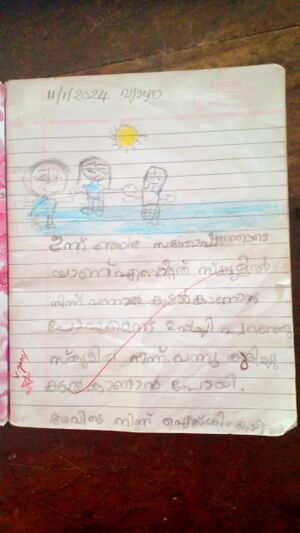 11/1/2024 വ്യാഴം
ഇന്ന് ഞാൻ സന്തോഷത്തോടെ
യാണ് എണീറ്റത് സ്കൂളിൽ
നിന്ന് വന്നാൽ കടൽ കാണാൻ
പോവുമെന്ന് ഉപ്പച്ചി പറഞ്ഞു
സ്കൂളിൽ നിന്ന് വന്നു കുളിച്ചു
കടൽ കാണാൻ പോയി.
അവിടെ നിന്ന് ഐസ്ക്രീം കഴിച്ചു